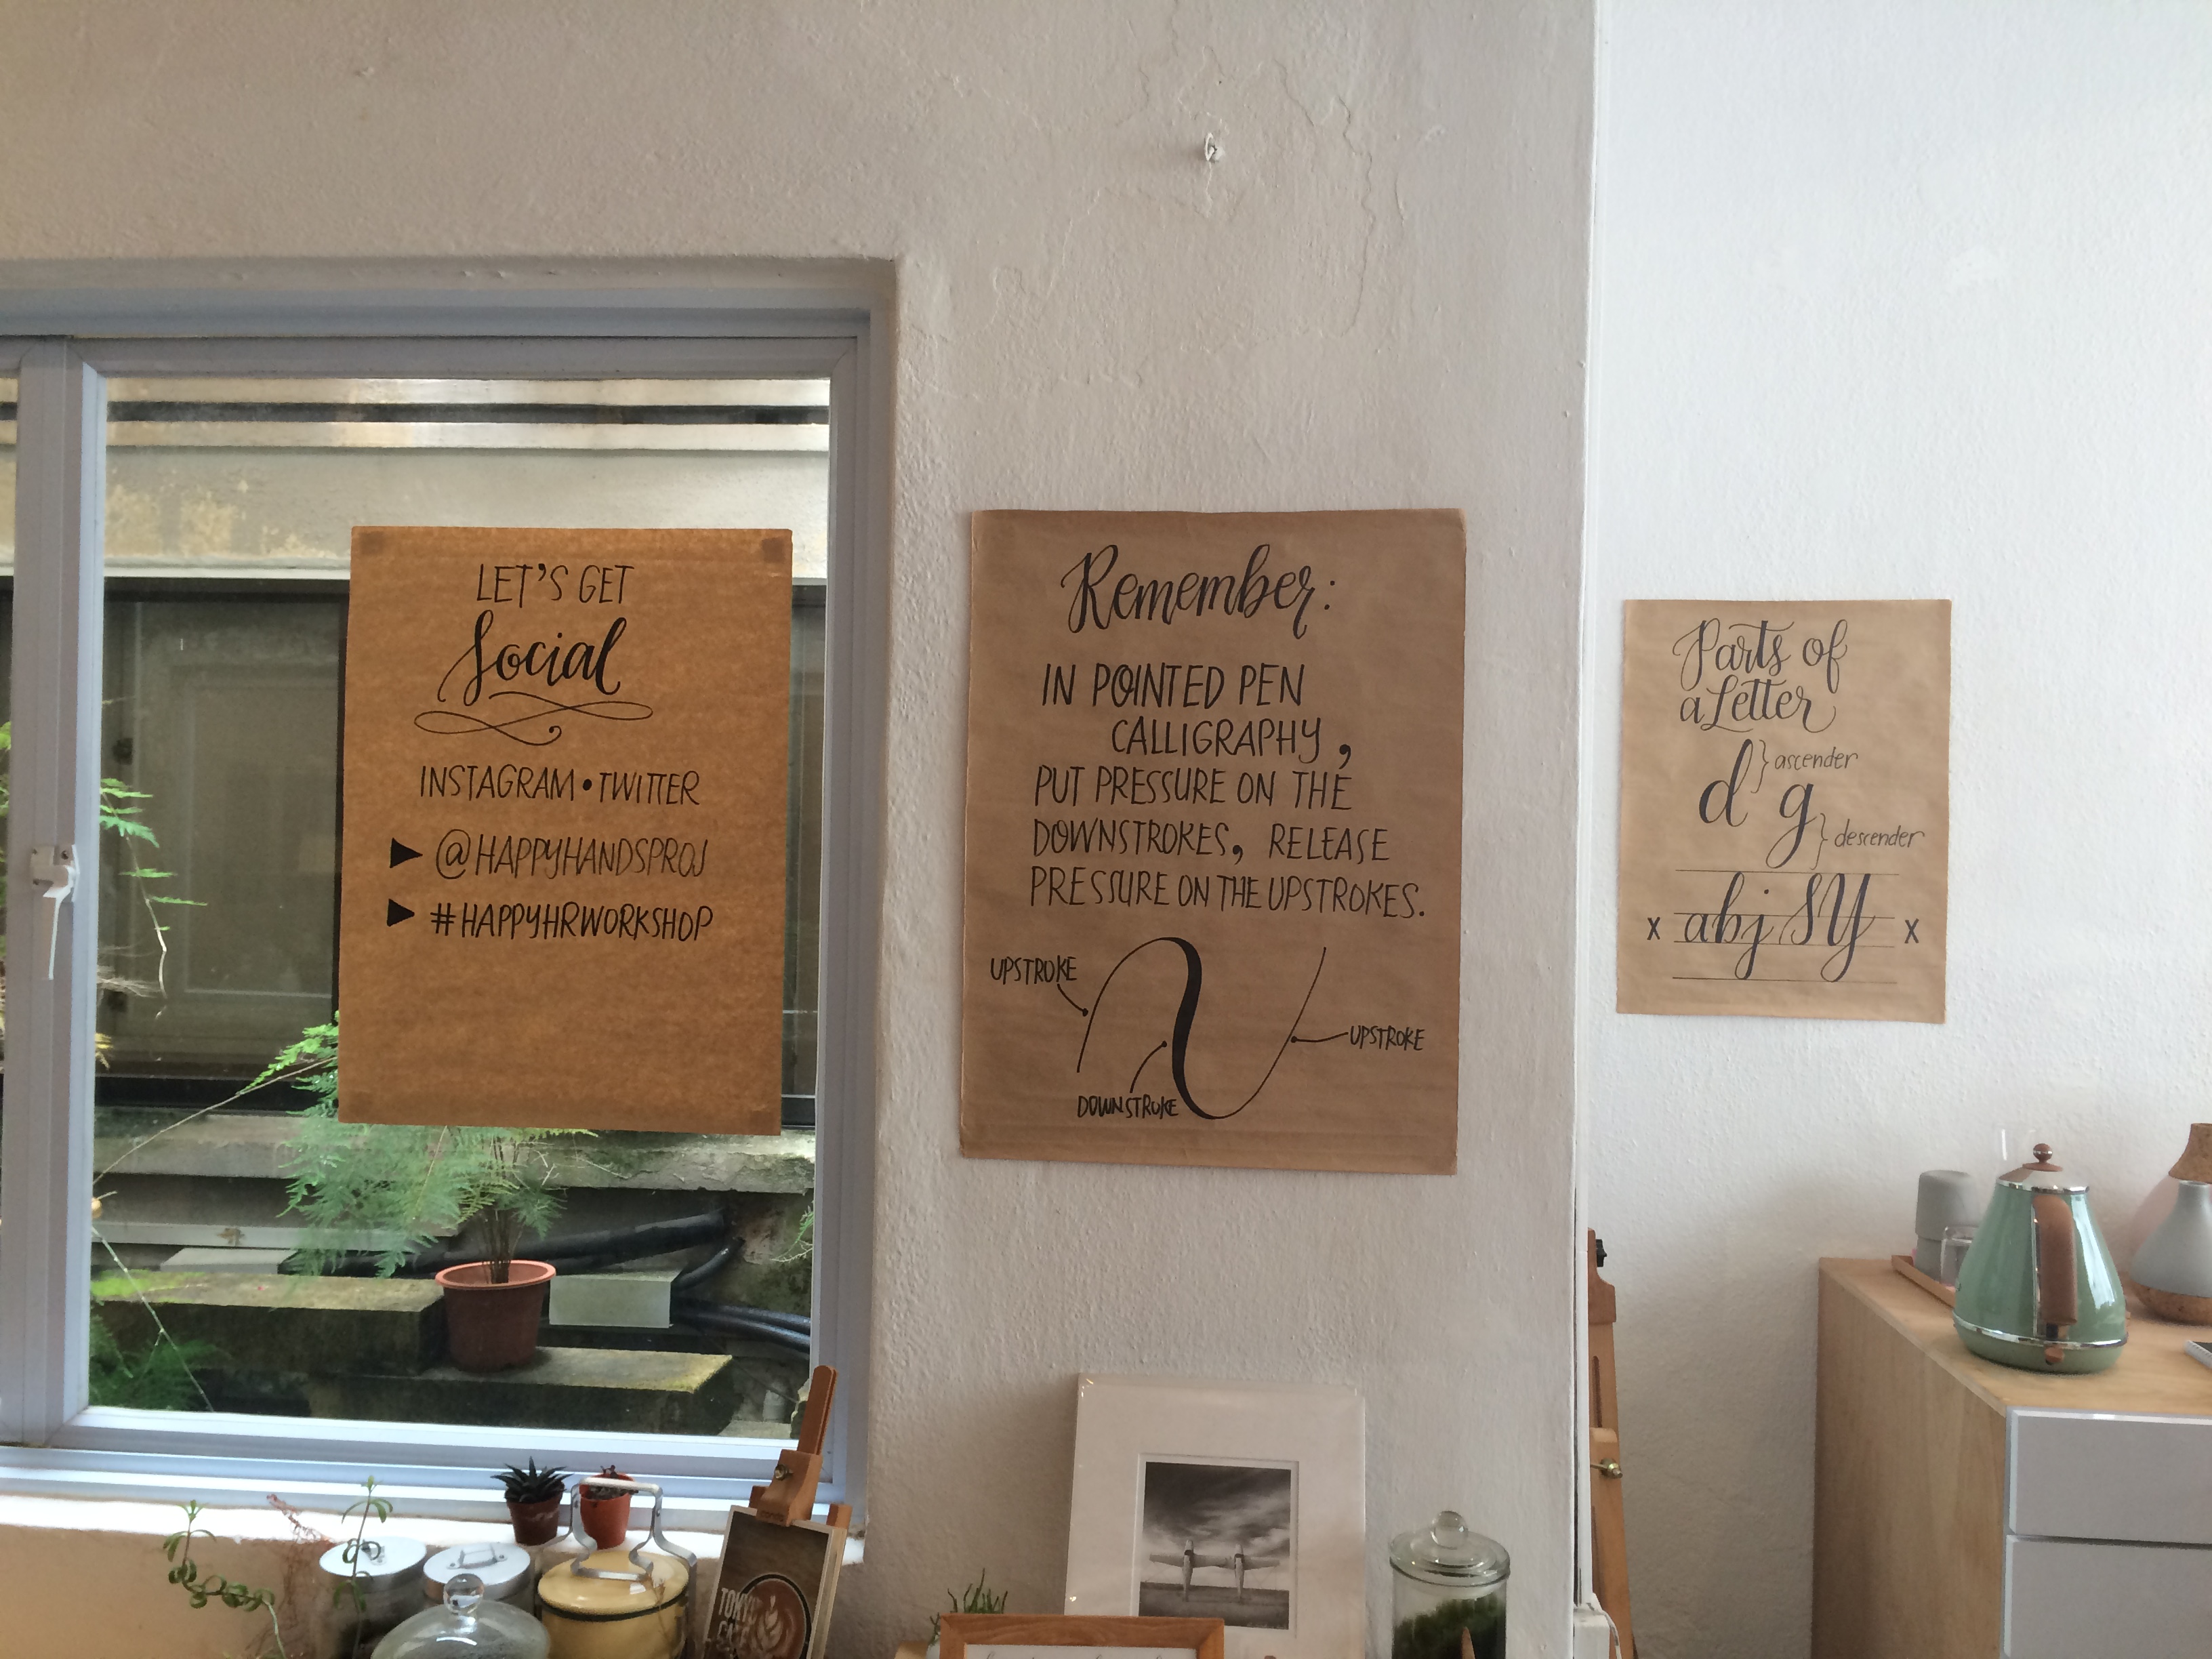 LET'S GET
Social
INSTAGRAM • TWITTER
► @HAPPYHANDSPROJ
► #HAPPYHRWORKSHOP
Remember:
IN POINTED PEN
CALLIGRAPHY,
PUT PRESSURE ON THE
DOWNSTROKES, RELEASE
PRESSURE ON THE UPSTROKES.
UPSTROKE
UPSTROKE
DOWNSTROKE
Parts of
a Letter
d } ascender
g } descender
x abj SY x
TOKYO
CAFE